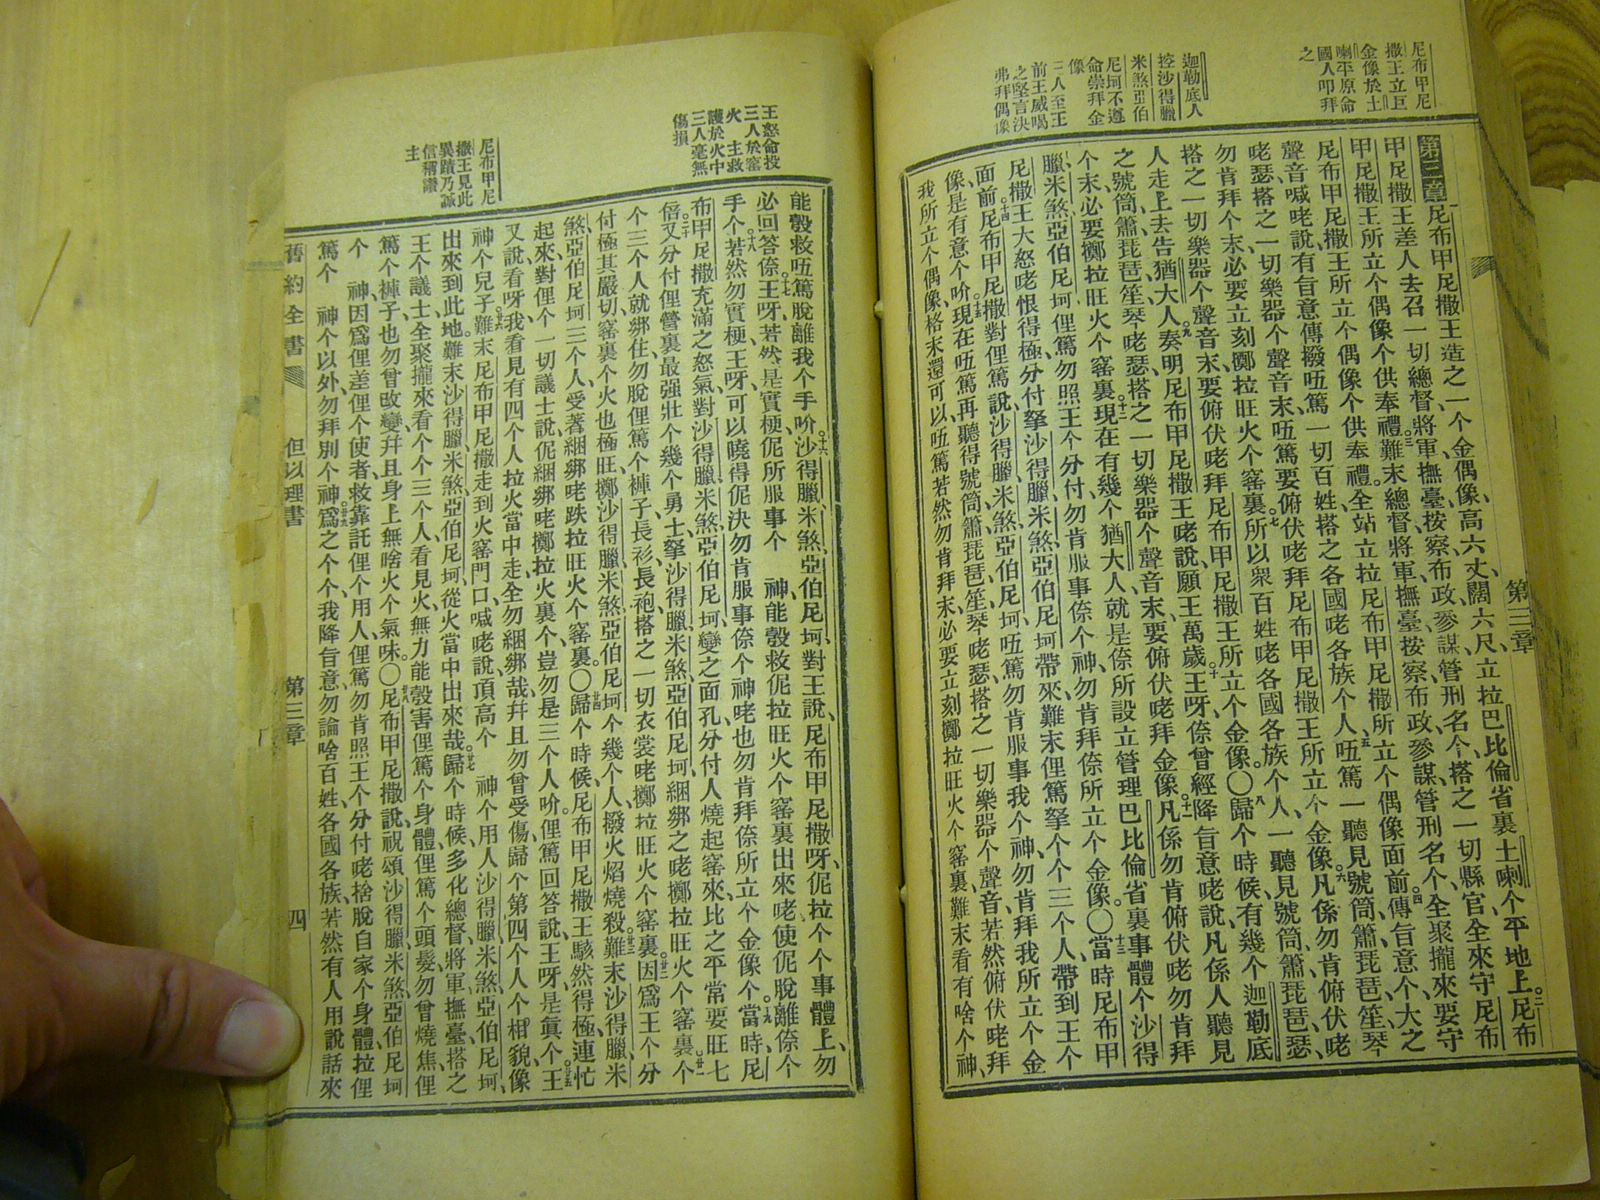 尼布甲尼
撒王立巨
金像於土
喇平原命
國人叩拜
之
迦勒底人
控沙得臘
米煞亞伯
尼坷不遵
命崇拜金
像
三人至王
前王威喝
之堅言決
弗拜偶像
第三章
第三章尼布甲尼撒王造之一个金偶像、高六丈、闊六尺、立拉巴比倫省裏土喇个平地上。二尼布
甲尼撒王差人去召一切總督將軍撫臺按察布政參謀管刑名个、搭之一切縣官全來守尼布
甲尼撒王所立个偶像个供奉禮。三難末總督將軍撫臺按察布政參謀管刑名个、全聚攏來、要守
尼布甲尼撒王所立个偶像个供奉禮。全站立拉尼布甲尼撒所立个偶像面前。四傳旨意个、大之
聲音喊咾說、有旨意傳撥㕶篤一切百姓搭之各國咾各族个人、五㕶篤一聽見號筒簫琵琶笙琴
咾瑟、搭之一切樂器个聲音末、㕶篤要俯伏咾拜尼布甲尼撒王所立个金像。六凡係勿肯俯伏咾
勿肯拜个末、必要立刻擲拉旺火个窰裏。七所以衆百姓咾各國各族个人、一聽見號筒簫琵琶瑟、
搭之一切樂器个聲音末、要俯伏咾拜尼布甲尼撒王所立个金像。〇八歸个時候、有幾个迦勒底
人走上去告猶大人。九奏明尼布甲尼撒王咾說、願王萬歲。十王呀、倷曾經降旨意咾說、凡係人聽見
之號筒簫琵琶笙琴咾瑟、搭之一切樂器个聲音末、要俯伏咾拜金像。十一凡係勿肯俯伏咾勿肯拜
个末、必要擲拉旺火个窰裏。十二現在有幾个猶大人、就是倷所設立管理巴比倫省裏事體个沙得
臘米煞亞伯尼坷、俚篤勿照王个分付、勿肯服事倷个神、勿肯拜倷所立个金像。〇十三當時尼布甲
尼撒王大怒咾恨得極、分付拏沙得臘米煞亞伯尼坷帶來、難末俚篤拏个个三个人帶到王个
面前。十四尼布甲尼撒對俚篤說、沙得臘米煞亞伯尼坷、㕶篤勿肯服事我个神、勿肯拜我所立个金
像、是有意个吤。十五現在㕶篤再聽得號筒簫琵琶笙琴咾瑟、搭之一切樂器个聲音、若然俯伏咾拜
我所立个偶像、格末還可以、㕶篤若然勿肯拜末、必要立刻擲拉旺火个窰裏、難末看有啥个神、
王怒命投
三人於窰
火 主救
護於火中
三人毫無
傷損
尼布甲尼
撒王見此
異蹟乃誠
信稱讚
主
能彀救㕶篤脫離我个手吤。十六沙得臘米煞亞伯尼坷對王說、尼布甲尼撒呀、伲拉个个事體上、勿
必回答倷。十七王呀、若然是實梗、伲所服事个 神、能彀救伲拉旺火个窰裏出來、咾使伲脫離倷个
手个。十八若然勿實梗、王呀、可以曉得伲決勿肯服事倷个神、咾也勿肯拜倷所立个金像个。十九當時尼
布甲尼撒充滿之怒氣、對沙得臘米煞亞伯尼坷變之面孔、分付人燒起窰來、比之平常要旺七
倍。二十又分付俚營裏最强壯个幾个勇士、拏沙得臘米煞亞伯尼坷綑綁之咾擲拉旺火个窰裏。廿一
个三个人就綁住、勿脫俚篤个褲子、長衫、長袍、搭之一切衣裳咾擲拉旺火个窰裏。廿二因爲王个分
付極其嚴切、窰裏个火也極旺、擲沙得臘米煞亞伯尼坷个幾个人、撥火焰燒殺。廿三難末沙得臘米
煞亞伯尼坷三个人、受著綑綁咾跌拉旺火个窰裏。〇廿四歸个時候、尼布甲尼撒王駭然得極、連忙
起來、對俚个一切議士說、伲綑綁咾擲拉火裏个、豈勿是三个人吤。俚篤回答說、王呀、是眞个。廿五王
又說、看呀、我看見有四个人、拉火當中走、全勿綑綁哉、幷且勿曾受傷、歸个第四个人个相貌、像
神个兒子。廿六難末尼布甲尼撒走到火窰門口、喊咾說、頂高个 神个用人沙得臘米煞亞伯尼坷、
出來到此地。難末沙得臘米煞亞伯尼坷從火當中出來哉。廿七歸个時候、多化總督將軍撫臺搭之
王个議士、全聚攏來看个个三个人、看見火無力能彀害俚篤个身體、俚篤个頭髮勿曾燒焦、俚
篤个褲子也勿曾改變、幷且身上無啥火个氣味。〇廿八尼布甲尼撒說、祝頌沙得臘米煞亞伯尼坷
个 神、因爲俚差俚个使者、救靠託俚个用人、俚篤勿肯照王个分付、咾捨脫自家个身體、拉俚
篤个 神个以外、勿拜別个神。廿九爲之个个、我降旨意、勿論啥百姓、各國各族、若然有人用說話來
舊約全書 但以理書 第三章 四